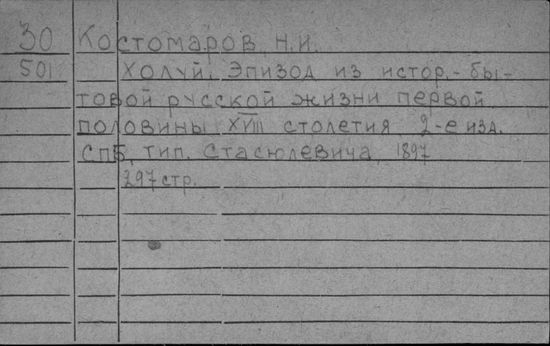 30 Костомаров Н.И.
501 Холуй. Эпизод из истор.-бы-
товой русской жизни первой
половины XVIII столетия 2-е изд.
СПБ, тип. Стасюлевича, 1897
297 стр.